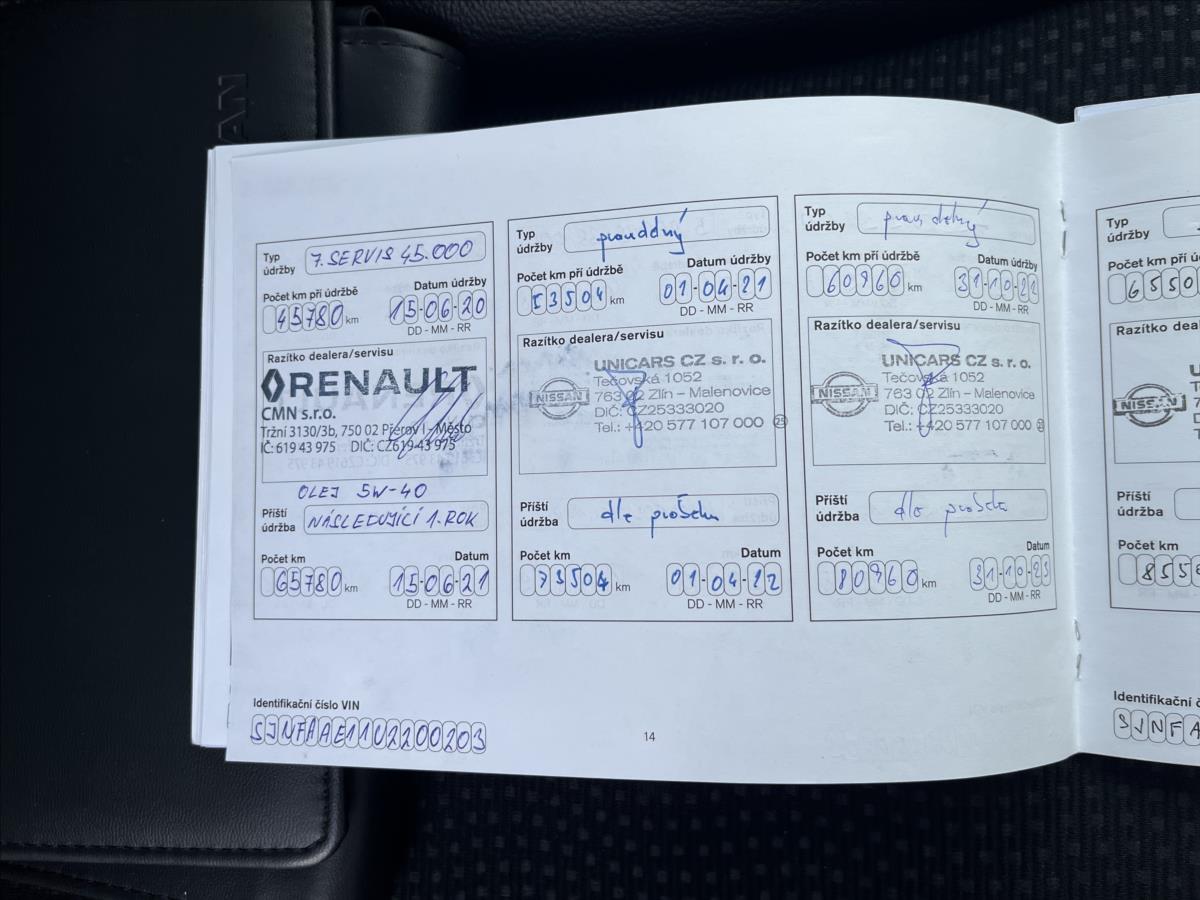 AN
Typ
údržby
7. SERVIS 45.000
Počet km při údržbě
Datum údržby
45780 km
15-06-20
DD - MM - RR
Razítko dealera/servisu
RENAULT
CMN s.r.o.
Tržní 3130/3b, 750 02 Přerov I - Město
IČ: 619 43 975 DIČ: CZ619 43 975
OLEJ 5W-40
Příští
údržba
NÁSLEDUJÍCÍ 1. ROK
Počet km
Datum
65780 km
15-06-21
DD - MM - RR
Typ
údržby
Počet km při údržbě
Datum údržby
53504 km
01-04-21
DD - MM - RR
Razítko dealera/servisu
NISSAN
UNICARS CZ s. r. o.
Tečovská 1052
763 02 Zlín – Malenovice
DIČ: CZ25333020
Tel.: +420 577 107 000 25
Příští
údržba
dle
Počet km
Datum
73504 km
01-04-22
DD - MM - RR
Typ
údržby
Počet km při údržbě
Datum údržby
60960 km
31-10-21
DD - MM - RR
Razítko dealera/servisu
NISSAN
UNICARS CZ s. r. o.
Tečovská 1052
763 02 Zlín – Malenovice
DIČ: CZ25333020
Tel.: +420 577 107 000
Příští
údržba
dle
Počet km
Datum
80960 km
31-10-23
DD - MM - RR
Typ
údržby
Počet km při ú
6550
Razítko dealera
NISSAN
Příští
údržba
Počet km
855
Identifikační číslo VIN
SJNFAAE11U2200203
14
Identifikační č
SJNFA